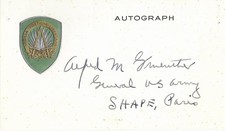 AUTOGRAPH
Alfred M Gruenther
General US Army
SHAPE, Paris